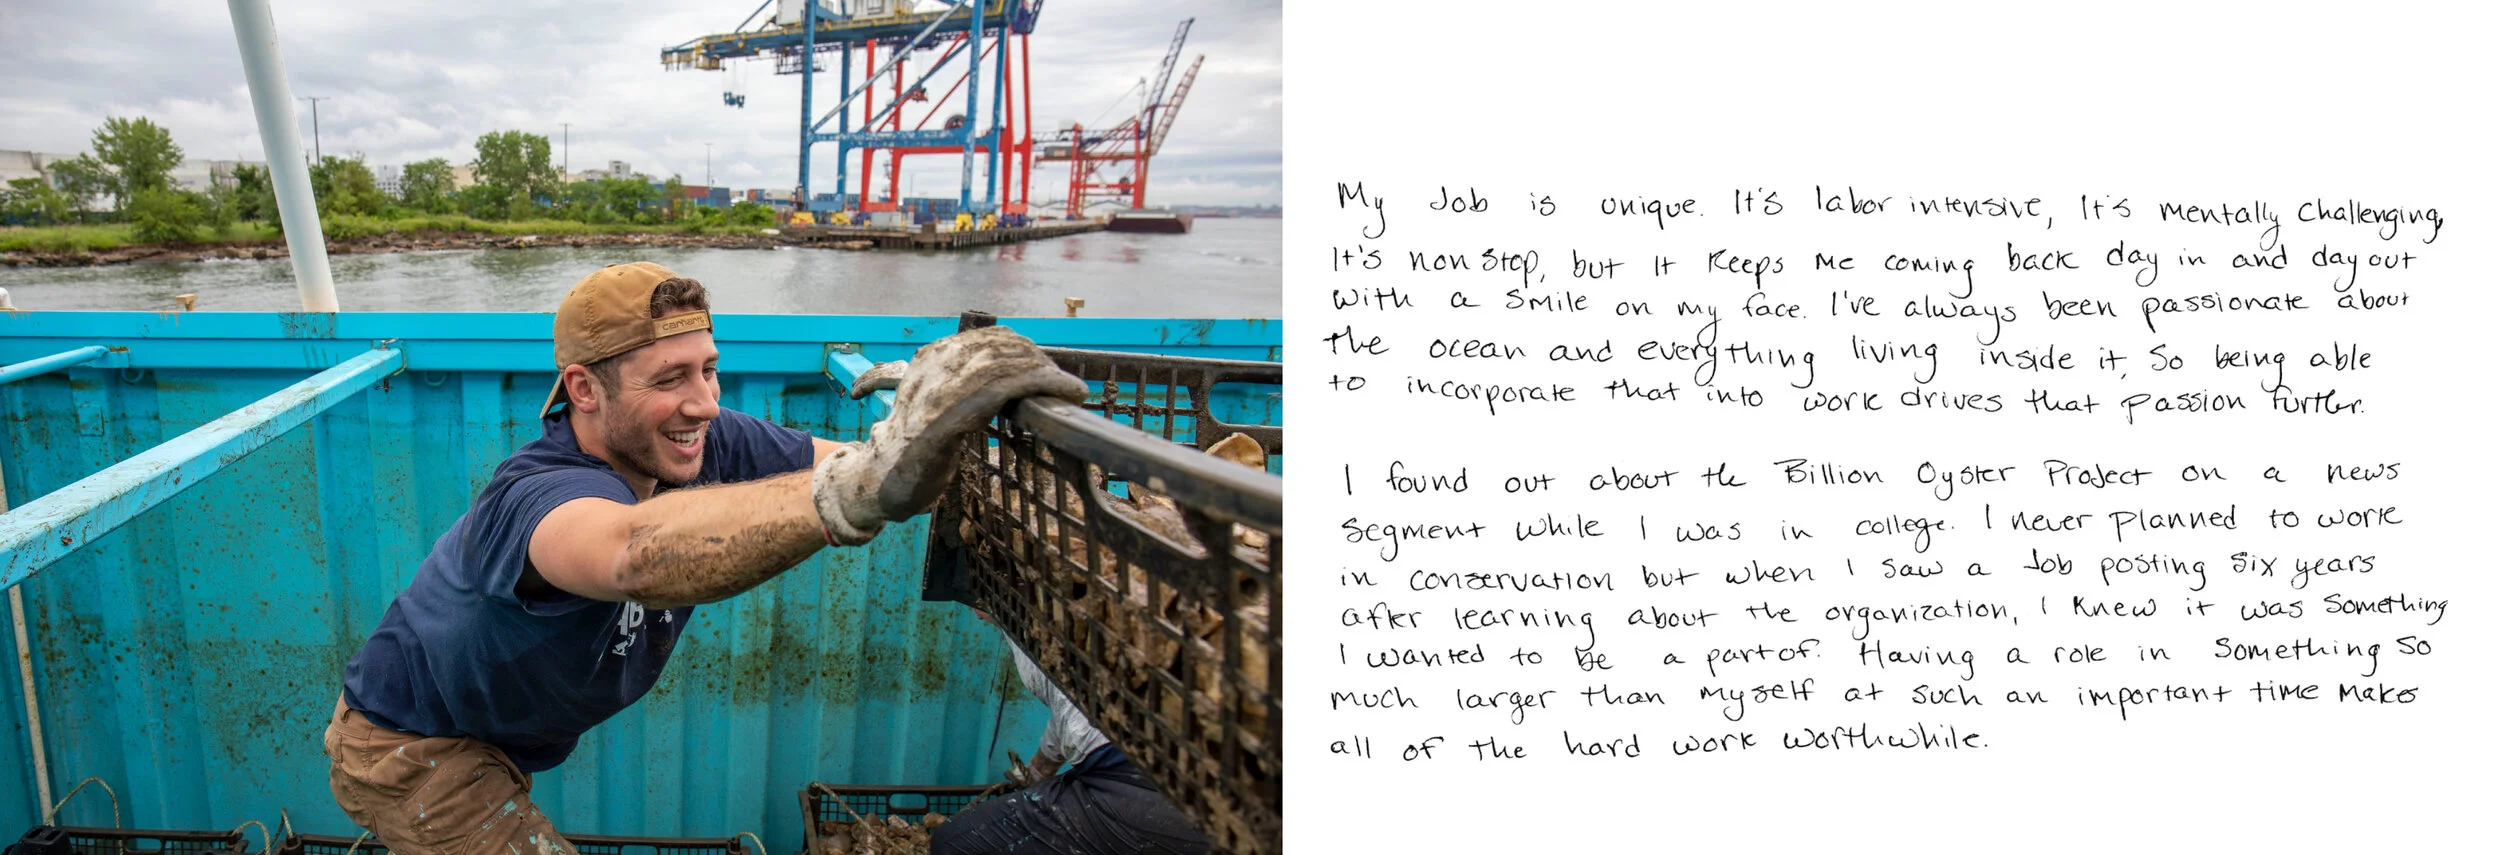 carhartt
My Job is unique. It's labor intensive, It's mentally challenging,
It's non stop, but it keeps me coming back day in and day out
with a smile on my face. I've always been passionate about
the ocean and everything living inside it, So being able
to incorporate that into work drives that passion further.
I found out about the Billion Oyster Project on a news
segment while I was in college. I never planned to work
in conservation but when I saw a Job posting six years
after learning about the organization, I knew it was something
I wanted to be a part of. Having a role in something so
much larger than myself at such an important time makes
all of the hard work worthwhile.